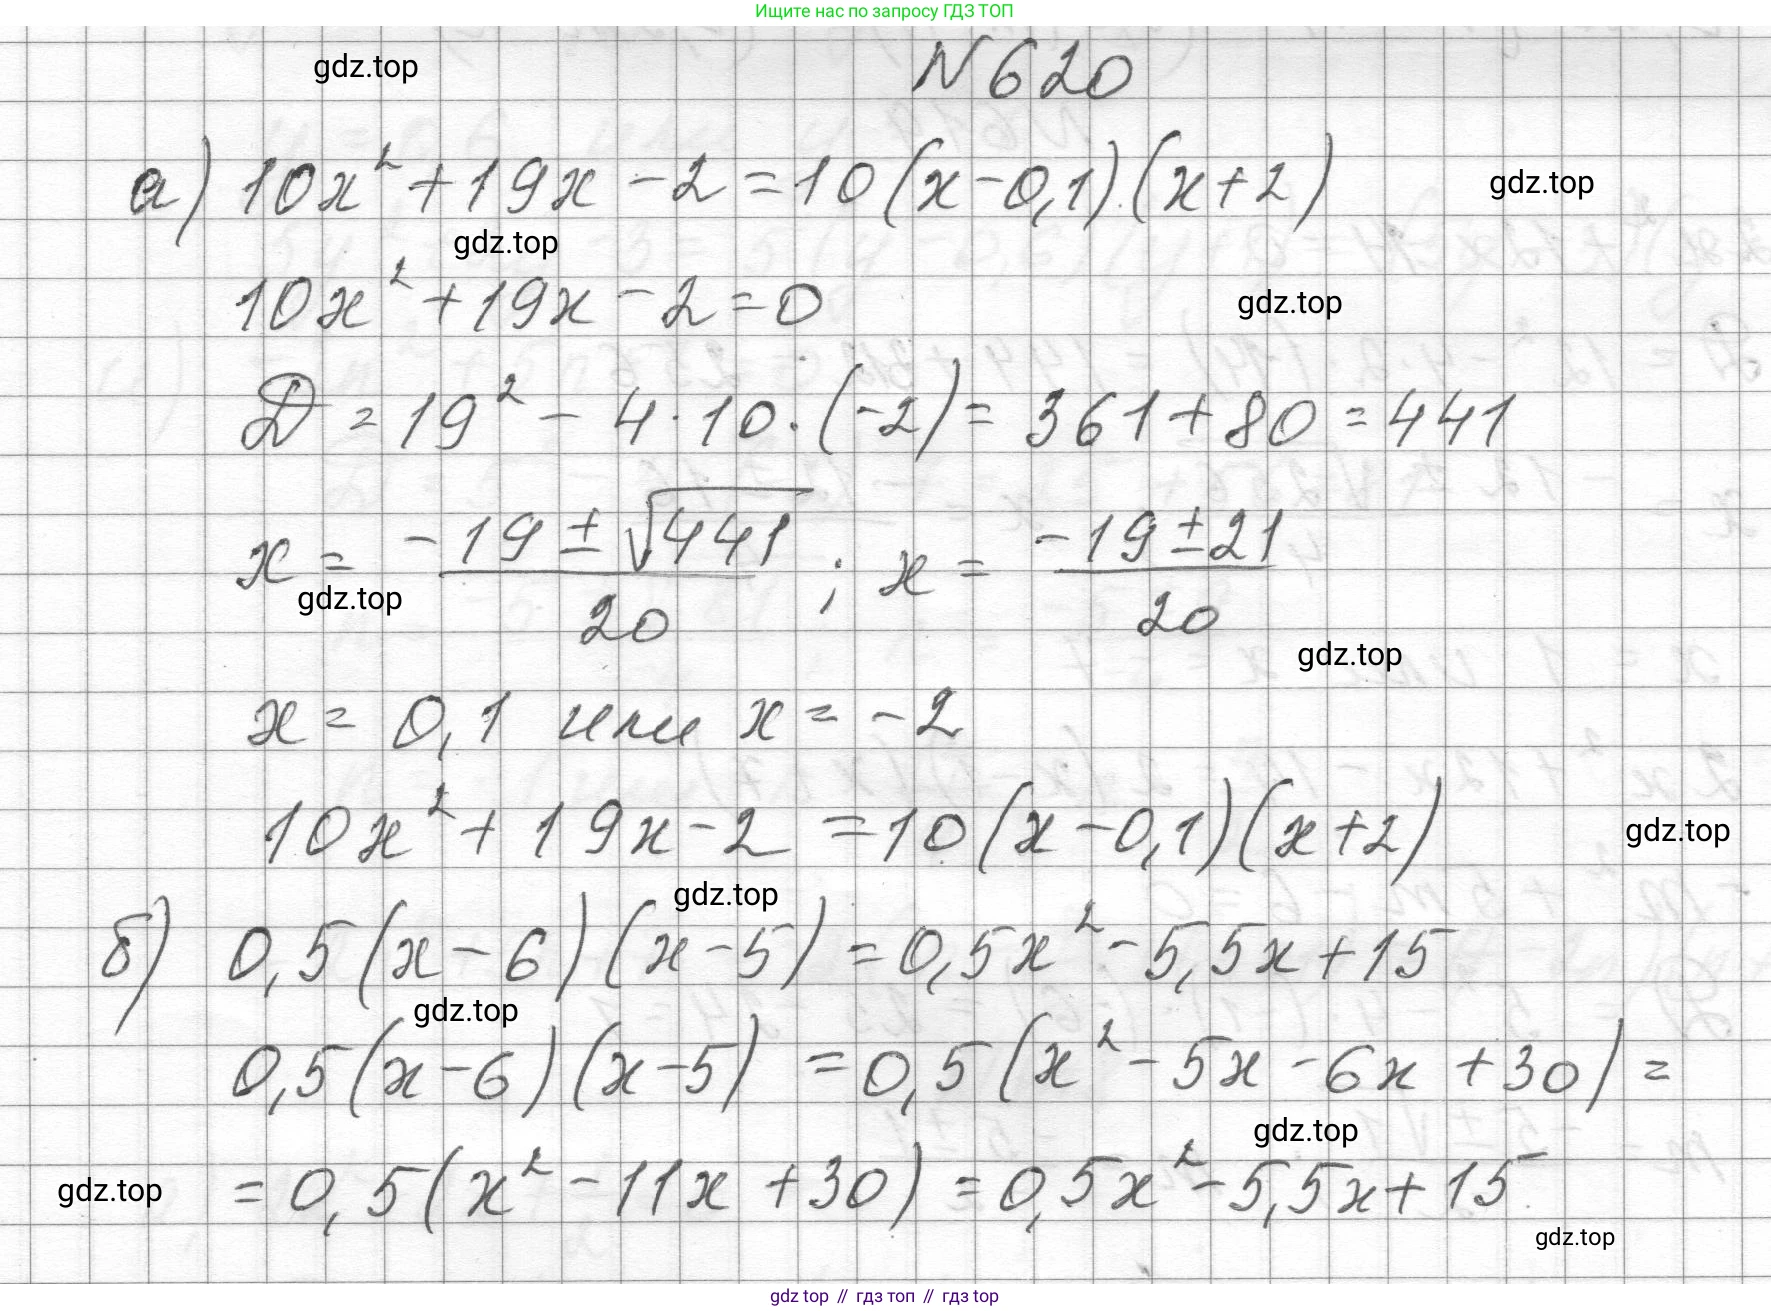 Ищите нас по запросу ГДЗ ТОП
gdz.top
N 620
а) 10x² + 19x - 2 = 10(x - 0,1)(x + 2)
gdz.top
gdz.top
10x² + 19x - 2 = 0
gdz.top
D = 19² - 4 · 10 · (-2) = 361 + 80 = 441
x = (-19 ± √441)/20 ; x = (-19 ± 21)/20
gdz.top
gdz.top
x = 0,1 или x = -2
10x² + 19x - 2 = 10(x - 0,1)(x + 2)
gdz.top
gdz.top
б) 0,5(x - 6)(x - 5) = 0,5x² - 5,5x + 15
gdz.top
0,5(x - 6)(x - 5) = 0,5(x² - 5x - 6x + 30) =
gdz.top
gdz.top
= 0,5(x² - 11x + 30) = 0,5x² - 5,5x + 15
gdz.top
gdz top // гдз топ // гдз top